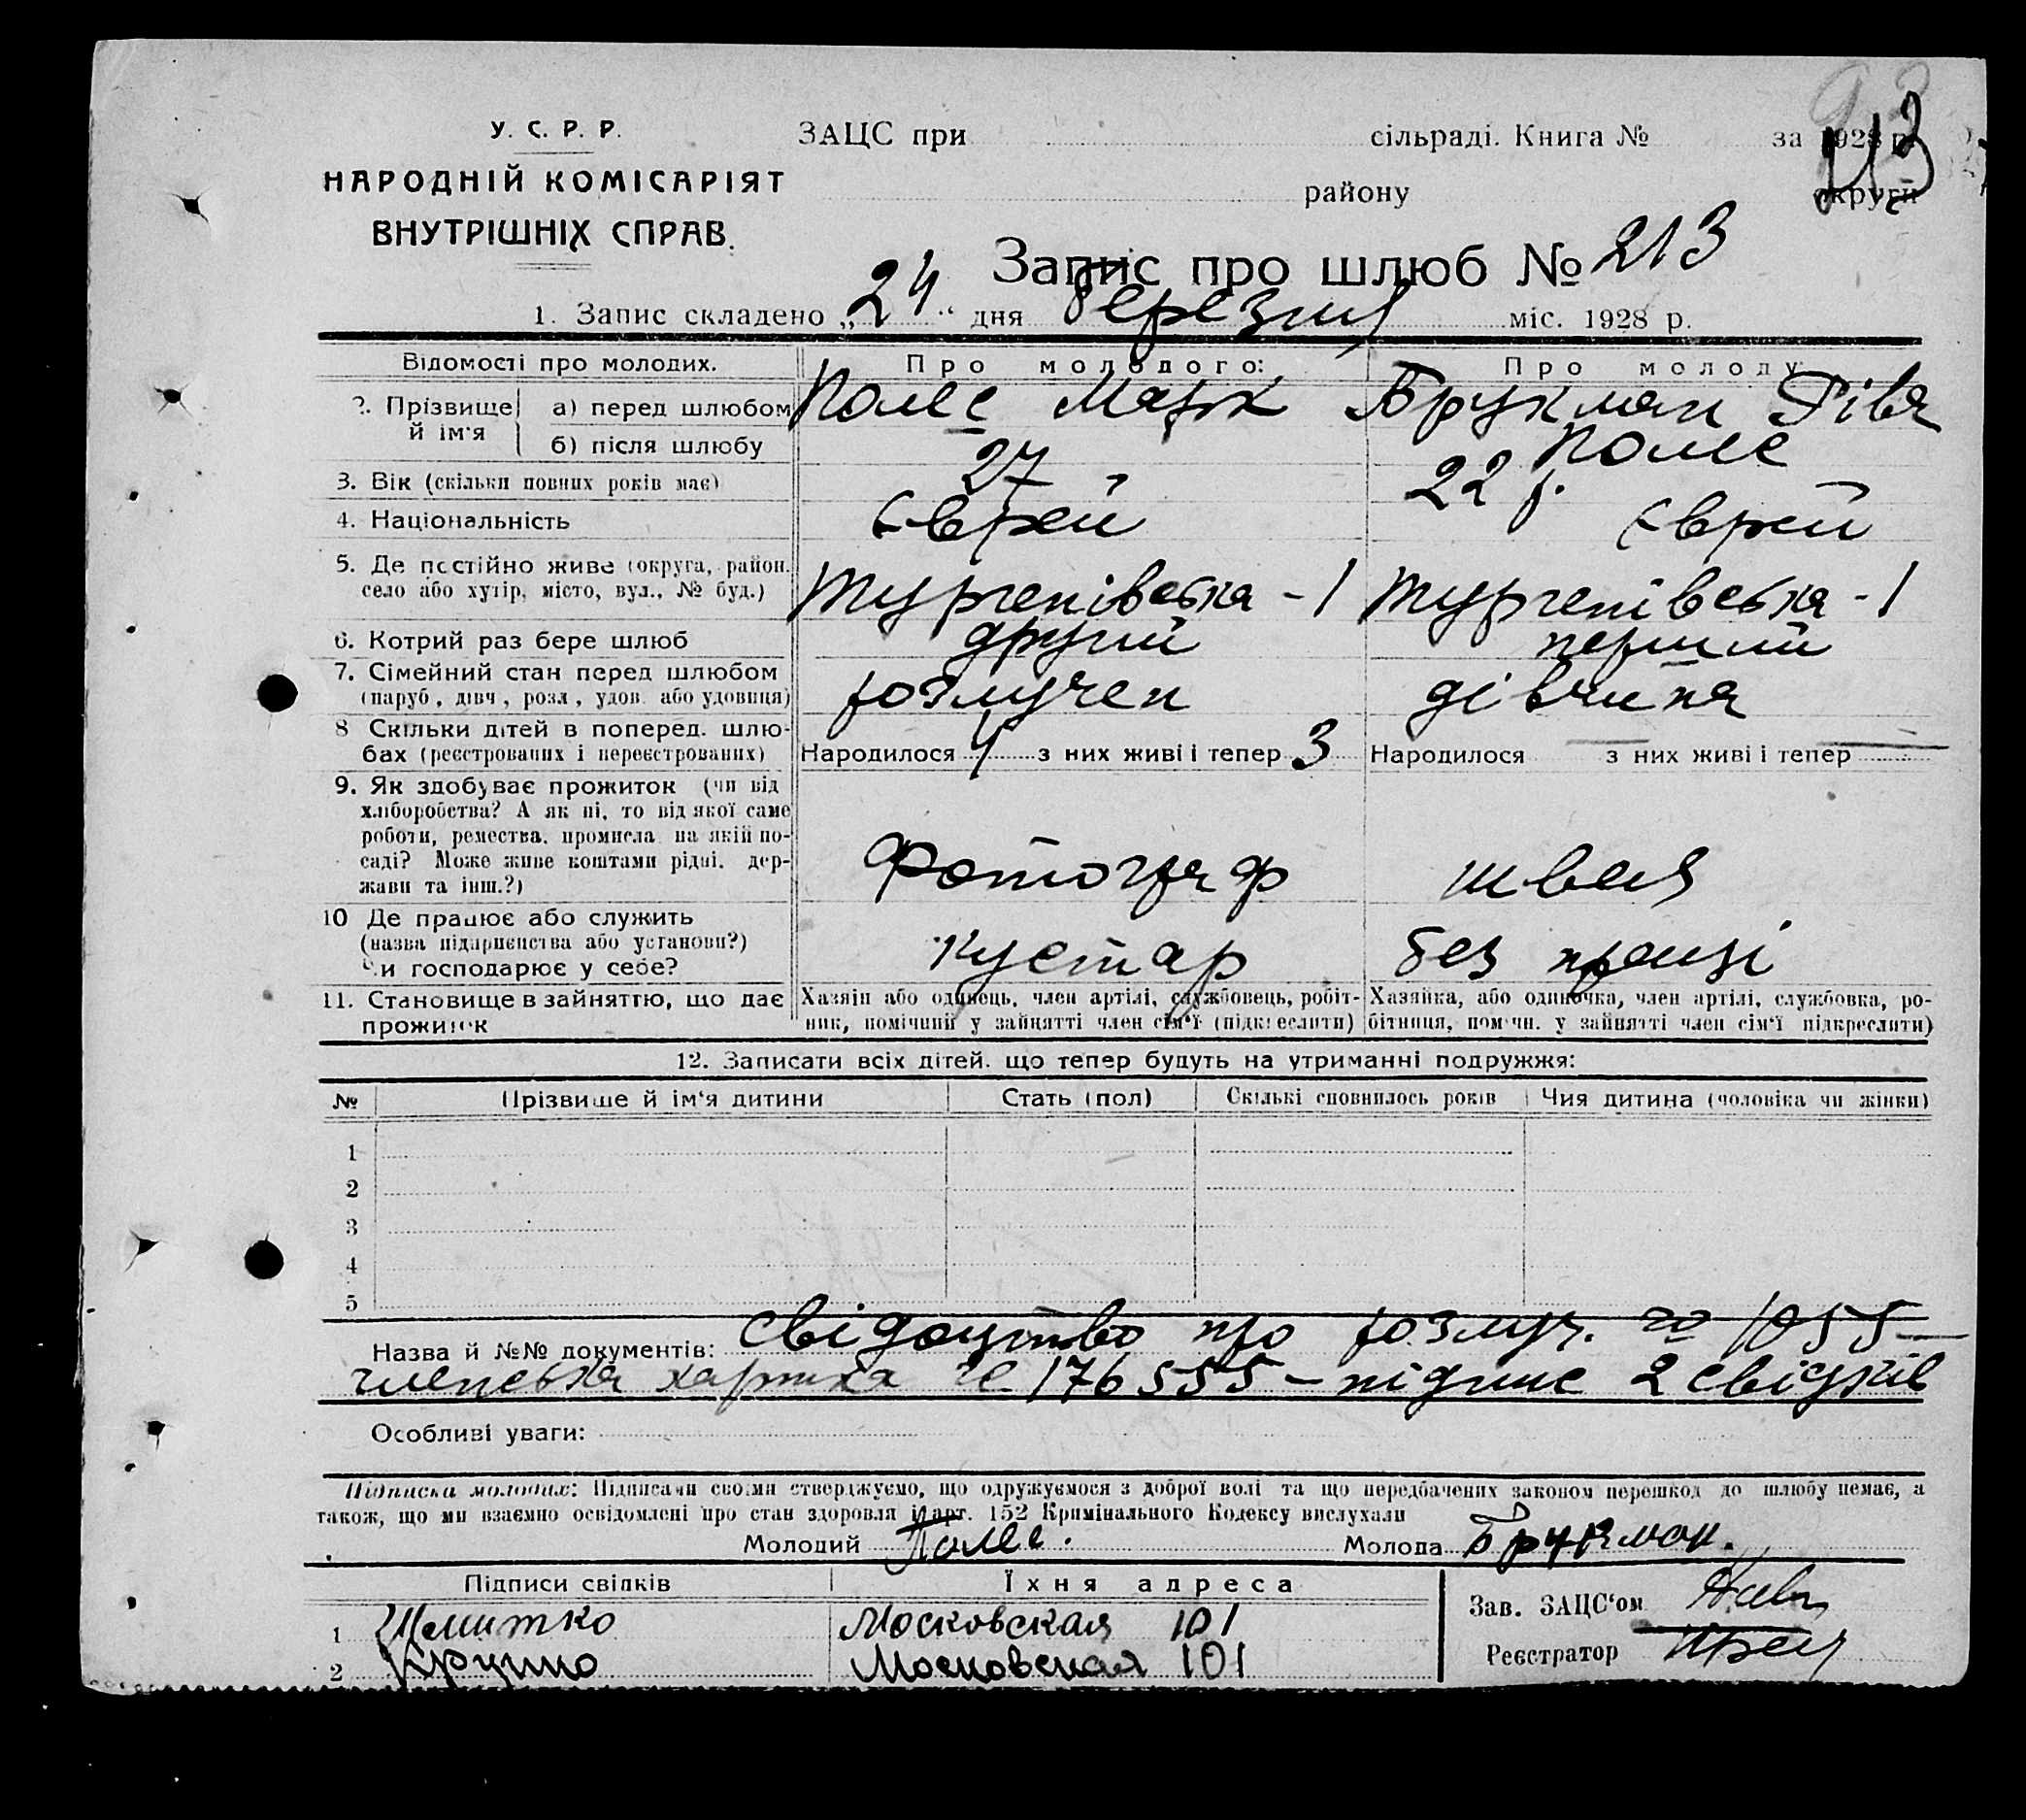 У. С. Р. Р.
НАРОДНІЙ КОМІСАРІЯТ
ВНУТРІШНІХ СПРАВ.
ЗАЦС при сільраді. Книга № за 1928 р.
району округи
Запис про шлюб № 213
1. Запис складено „24“ дня березня міс. 1928 р.
Відомості про молодих. Про молодого: Про молоду:
2. Прізвище й ім'я а) перед шлюбом Полес Марк Брукман Рівя
б) після шлюбу Полес
3. Вік (скільки повних років має) 27 22 р.
4. Національність Єврей Єврей
5. Де постійно живе (округа, район,
село або хутір, місто, вул., № буд.) Тургенівська - 1 Тургенівська - 1
6. Котрий раз бере шлюб другий перший
7. Сімейний стан перед шлюбом
(паруб., дівч., розл., удов. або удовиця) розлучен дівчина
8 Скільки дітей в поперед. шлю-
бах (реєстрованих і нереєстрованих) Народилося 4 з них живі і тепер 3 Народилося — з них живі і тепер —
9. Як здобуває прожиток (чи від
хліборобства? А як ні, то від якої саме
роботи, ремества, промисла на якій по-
саді? Може живе коштами рідні, дер-
жави та інш.?) Фотограф швея
10 Де працює або служить
(назва підприємства або установи?)
Чи господарює у себе? кустар без праці
11. Становище в зайняттю, що дає
прожиток
Хазяїн або одинець, член артілі, службовець, робіт-
ник, помічний у зайнятті член сім'ї (підкреслити)
Хазяйка, або одиночка, член артілі, службовка, ро-
бітниця, помічн. у зайнятті член сім'ї підкреслити)
12. Записати всіх дітей, що тепер будуть на утриманні подружжя:
№ Прізвище й ім'я дитини Стать (пол) Скількі сповнилось років Чия дитина (чоловіка чи жінки)
1
2
3
4
5
Назва й №№ документів: свідоцтво про розлуч. 1055 —
членська картка № 176555 – підпис 2 свідків
Особливі уваги:
Підписка молодих: Підписами своїми стверджуємо, що одружуємося з доброї волі та що передбачених законом перешкод до шлюбу немає, а
також, що ми взаємно освідомлені про стан здоровля й арт. 152 Кримінального Кодексу вислухали
Молодий Полес. Молода Брукман.
Підписи свідків Їхня адреса
1 Московская 101
2 Московская 101
Зав. ЗАЦС'ом
Реєстратор